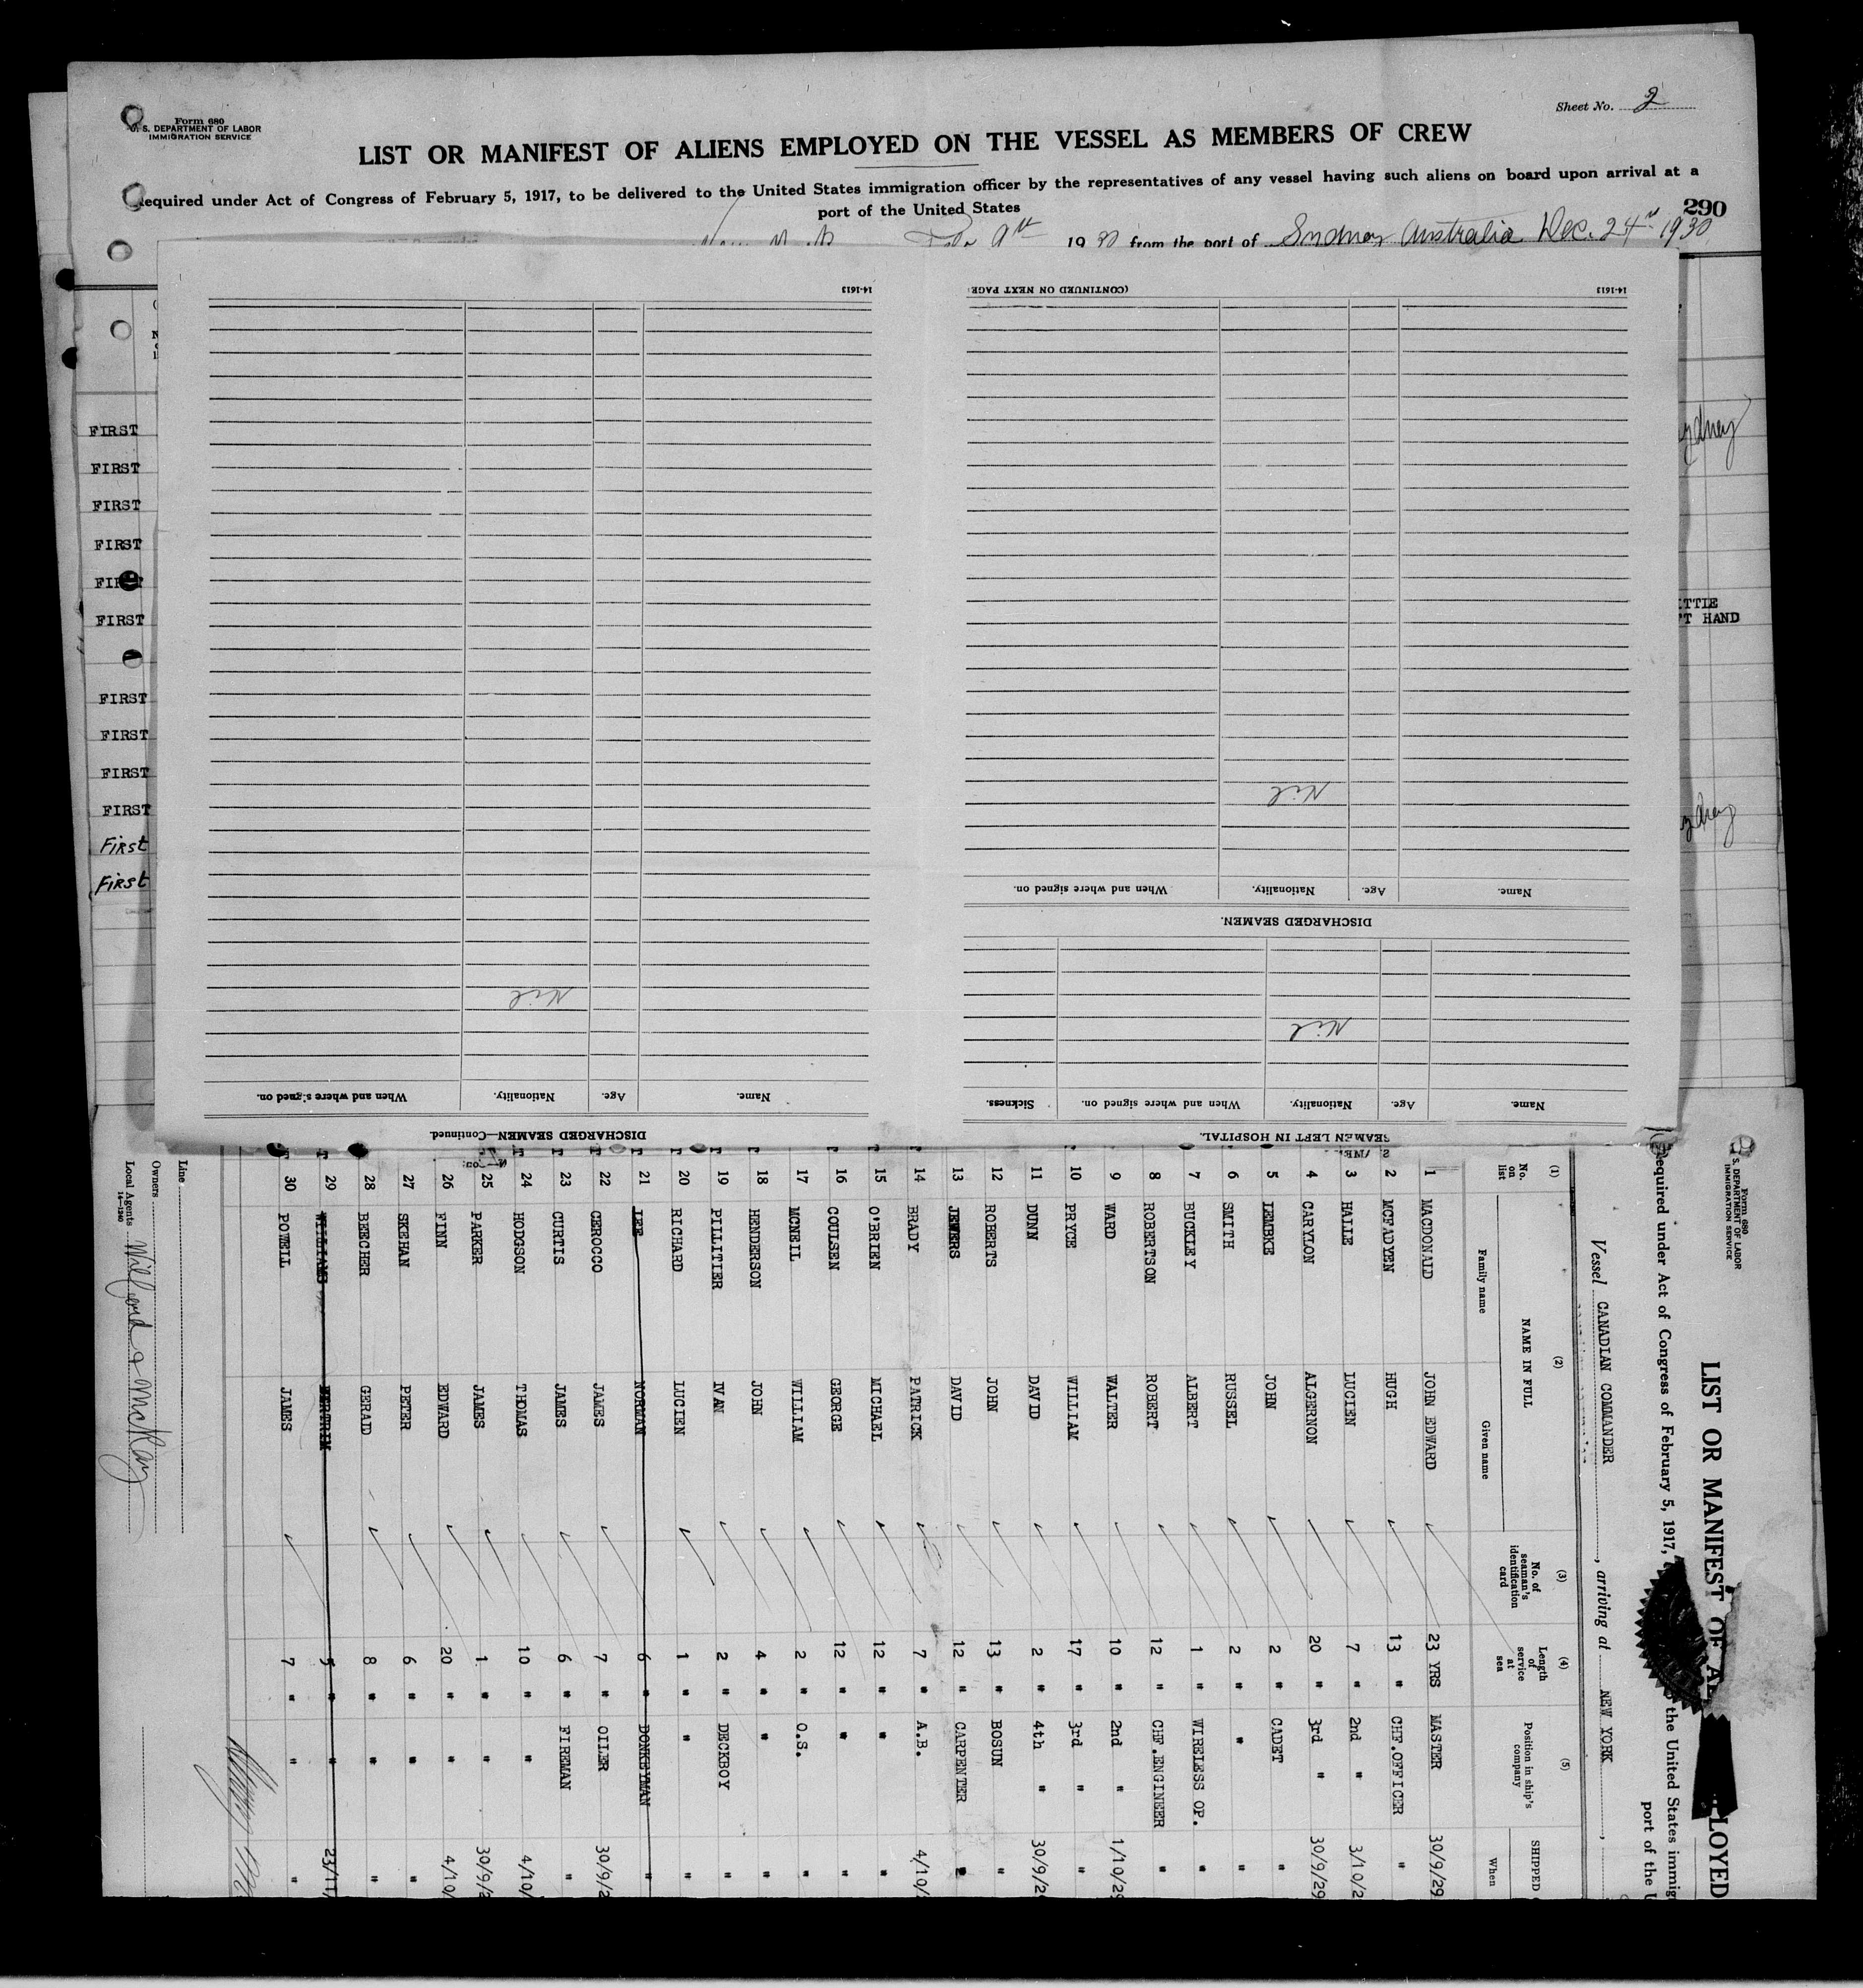 Form 680
U. S. DEPARTMENT OF LABOR
IMMIGRATION SERVICE
Sheet No. 2
LIST OR MANIFEST OF ALIENS EMPLOYED ON THE VESSEL AS MEMBERS OF CREW
Required under Act of Congress of February 5, 1917, to be delivered to the United States immigration officer by the representatives of any vessel having such aliens on board upon arrival at a
port of the United States
290
19 30 from the port of Sydney Australia Dec. 24th 1930
FIRST
FIRST
FIRST
FIRST
FIRST
FIRST
FIRST
FIRST
FIRST
FIRST
First
First
Sydney
TTIE
T HAND
Sydney
SEAMEN LEFT IN HOSPITAL.
Name. Age. Nationality. When and where signed on. Sickness.
Nil
DISCHARGED SEAMEN.
Name. Age. Nationality. When and where signed on.
Nil
14-1613 (CONTINUED ON NEXT PAGE)
DISCHARGED SEAMEN—Continued
Name. Age. Nationality. When and where signed on.
Nil
14-1613
Form 680
U. S. DEPARTMENT OF LABOR
IMMIGRATION SERVICE
LIST OR MANIFEST OF AL LOYED
Required under Act of Congress of February 5, 1917, the United States immig
port of the U
Vessel CANADIAN COMMANDER, arriving at NEW YORK,
(1) (2) (3) (4) (5)
No. on list NAME IN FULL No. of seaman's identification card Length of service at sea Position in ship's company SHIPPED
Family name Given name When
1 MACDONALD JOHN EDWARD 23 YRS MASTER 30/9/29
2 MCFADYEN HUGH 13 " CHF.OFFICER "
3 HALLE LUCIEN 7 " 2nd " 3/10/2
4 CARYLON ALGERNON 20 " 3rd " 30/9/29
5 LEMBKE JOHN 2 " CADET "
6 SMITH RUSSEL 2 " " "
7 BUCKLEY ALBERT 1 " WIRELESS OP. "
8 ROBERTSON ROBERT 12 " CHF.ENGINEER "
9 WARD WALTER 10 " 2nd " 1/10/29
10 PRYCE WILLIAM 17 " 3rd " "
11 DUNN DAVID 2 " 4th " 30/9/29
12 ROBERTS JOHN 13 " BOSUN "
13 JEWERS DAVID 12 " CARPENTER "
14 BRADY PATRICK 7 " A.B. 4/10/2
15 O'BRIEN MICHAEL 12 " " "
16 COULSEN GEORGE 12 " " "
17 MCNEIL WILLIAM 2 " O.S. "
18 HENDERSON JOHN 4 " " "
19 PILLITIER IVAN 2 " DECKBOY "
20 RICHARD LUCIEN 1 " " "
21 LEE NORMAN 6 " DONKEYMAN "
22 CEROCCO JAMES 7 " OILER 30/9/2
23 CURTIS JAMES 6 " FIREMAN "
24 HODGSON THOMAS 10 " " 4/10/
25 PARKER JAMES 1 " " 30/9/2
26 FINN EDWARD 20 " " 4/10/
27 SKEHAN PETER 6 " " "
28 BEECHER GERAD 8 " " "
29 WILLIAMS BERTRIM 5 " " 23/11/
30 POWELL JAMES 7 " " "
Line
Owners
Local Agents Wilford & McKay
14-1240